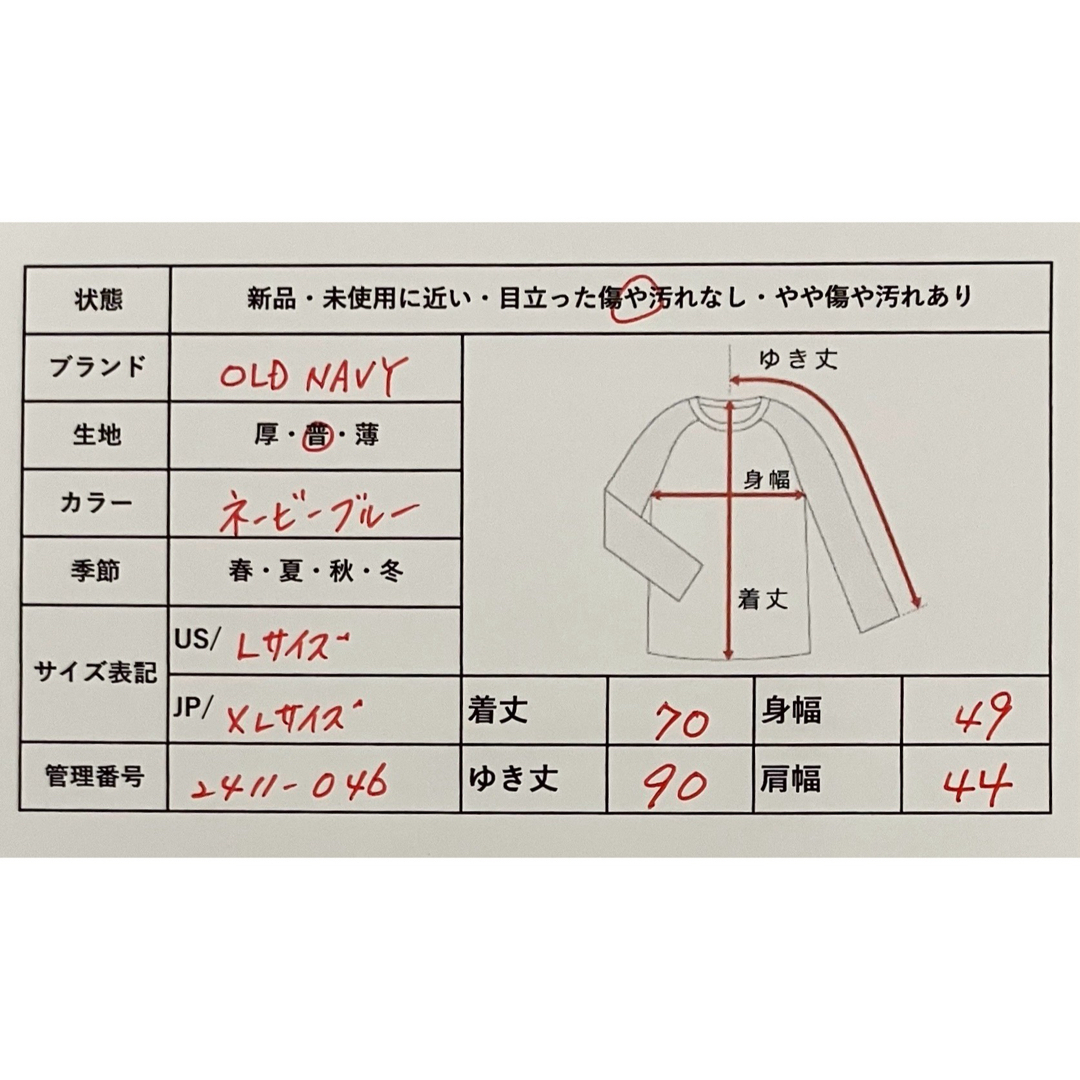 状態 新品・未使用に近い・目立った傷や汚れなし・やや傷や汚れあり
ブランド OLD NAVY
生地 厚・普・薄
カラー ネービーブルー
季節 春・夏・秋・冬
サイズ表記 US/ Lサイズ
JP/ XLサイズ
管理番号 2411-046
ゆき丈
身幅
着丈
着丈 70 身幅 49
ゆき丈 90 肩幅 44